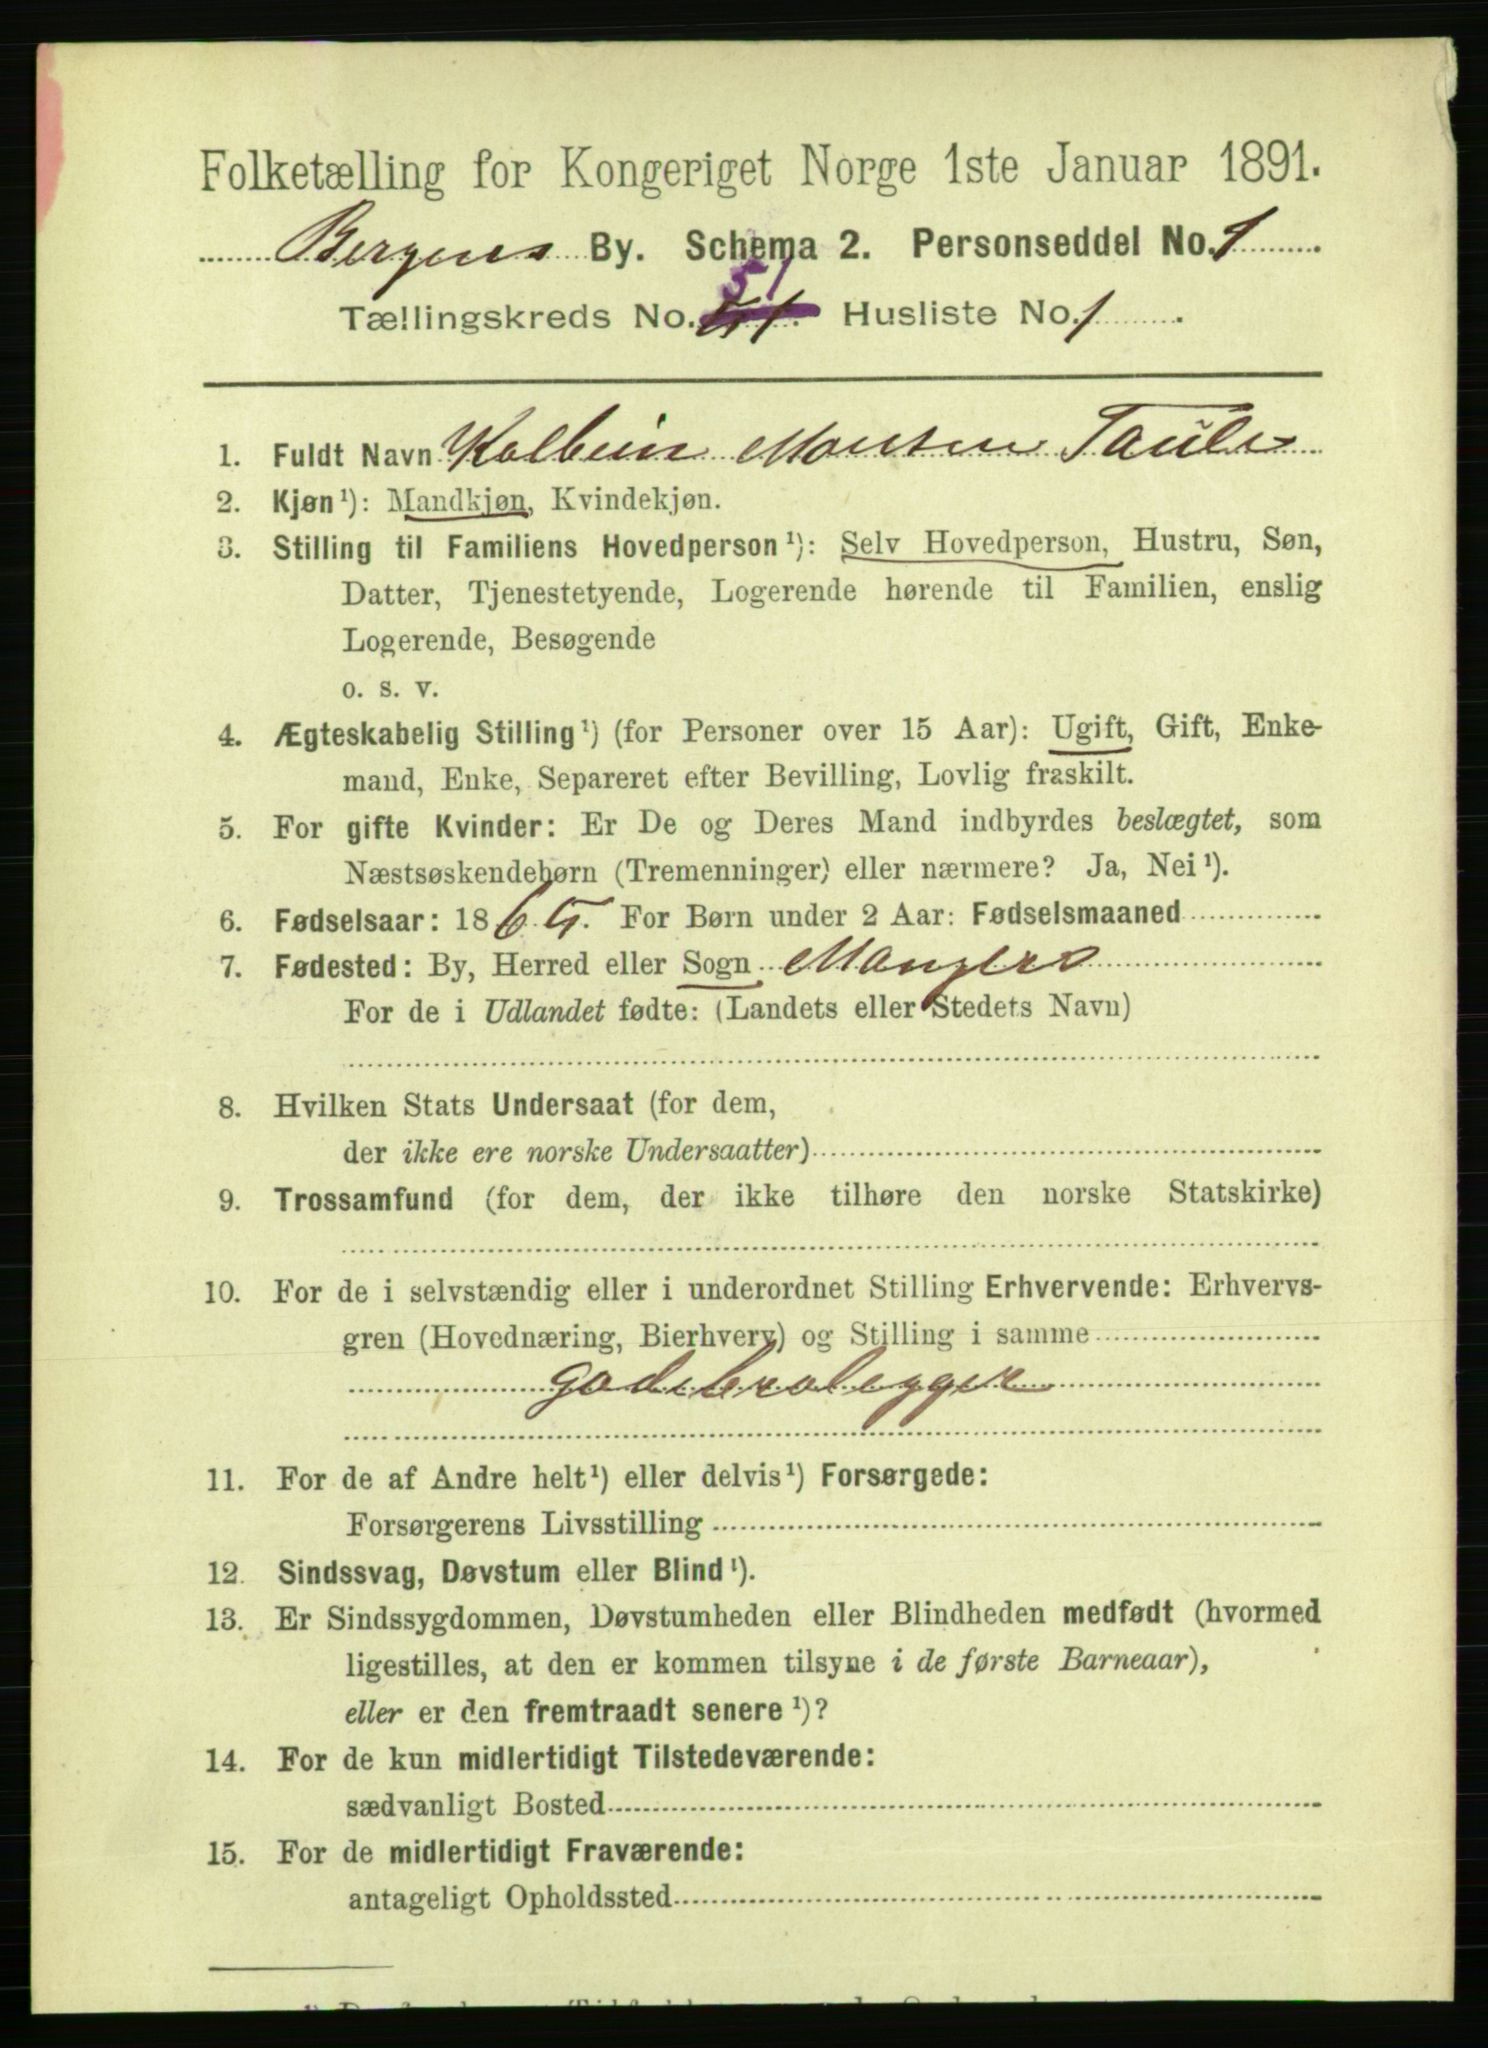 Folketælling for Kongeriget Norge 1ste Januar 1891.
Bergens By. Schema 2. Personseddel No. 1.
Tællingskreds No. 51. Husliste No. 1.
1. Fuldt Navn Kolbein Monsen Taule
2. Kjøn¹): Mandkjøn, Kvindekjøn.
3. Stilling til Familiens Hovedperson¹): Selv Hovedperson, Hustru, Søn,
Datter, Tjenestetyende, Logerende hørende til Familien, enslig
Logerende, Besøgende
o. s. v.
4. Ægteskabelig Stilling¹) (for Personer over 15 Aar): Ugift, Gift, Enke-
mand, Enke, Separeret efter Bevilling, Lovlig fraskilt.
5. For gifte Kvinder: Er De og Deres Mand indbyrdes beslægtet, som
Næstsøskendebørn (Tremenninger) eller nærmere? Ja, Nei¹).
6. Fødselsaar: 1865. For Børn under 2 Aar: Fødselsmaaned
7. Fødested: By, Herred eller Sogn Mangers
For de i Udlandet fødte: (Landets eller Stedets Navn)
8. Hvilken Stats Undersaat (for dem,
der ikke ere norske Undersaatter)
9. Trossamfund (for dem, der ikke tilhøre den norske Statskirke)
10. For de i selvstændig eller i underordnet Stilling Erhvervende: Erhvervs-
gren (Hovednæring, Bierhverv) og Stilling i samme
gadebrolegger
11. For de af Andre helt¹) eller delvis¹) Forsørgede:
Forsørgerens Livsstilling
12. Sindssvag, Døvstum eller Blind¹).
13. Er Sindssygdommen, Døvstumheden eller Blindheden medfødt (hvormed
ligestilles, at den er kommen tilsyne i de første Barneaar),
eller er den fremtraadt senere¹)?
14. For de kun midlertidigt Tilstedeværende:
sædvanligt Bosted
15. For de midlertidigt Fraværende:
antageligt Opholdssted